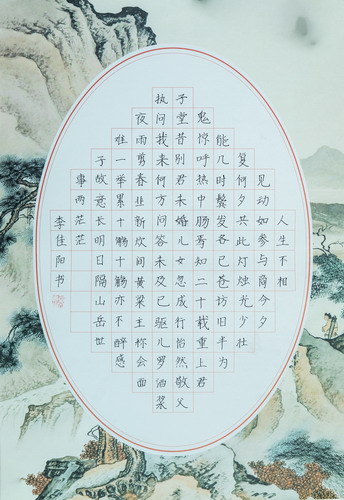 人生不相
见动如参与商今夕
复何夕共此灯烛光少壮
能几时鬓发各已苍访旧半为
鬼惊呼热中肠焉知二十载重上君
子堂昔别君未婚儿女忽成行怡然敬父
执问我来何方问答未及已驱儿罗酒浆
夜雨剪春韭新炊间黄粱主称会面
难一举累十觞十觞亦不醉感
子故意长明日隔山岳世
事两茫茫
李佳阳书